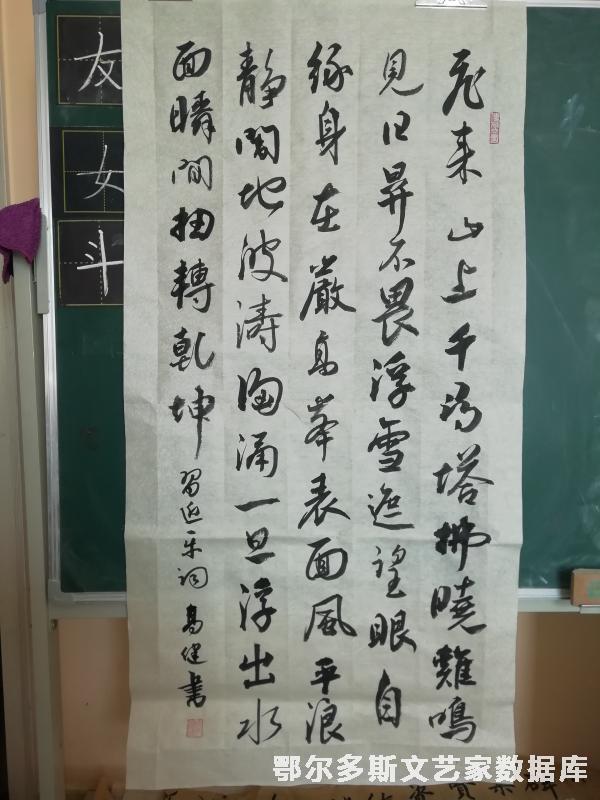 飛来山上千尋塔拂曉雞鳴
見日昇不畏浮雲遮望眼自
緣身在嚴高峯表面風平浪
靜地波濤洶涌一旦浮出水
面瞬間扭轉乾坤
習近平詞 高健書
友
女
斗
鄂尔多斯文艺家数据库